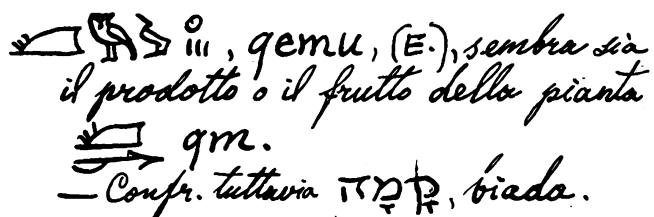 , qemu, (E.), sembra sia
il prodotto o il frutto della pianta
qm.
— Confr. tuttavia קָמָה, biada.